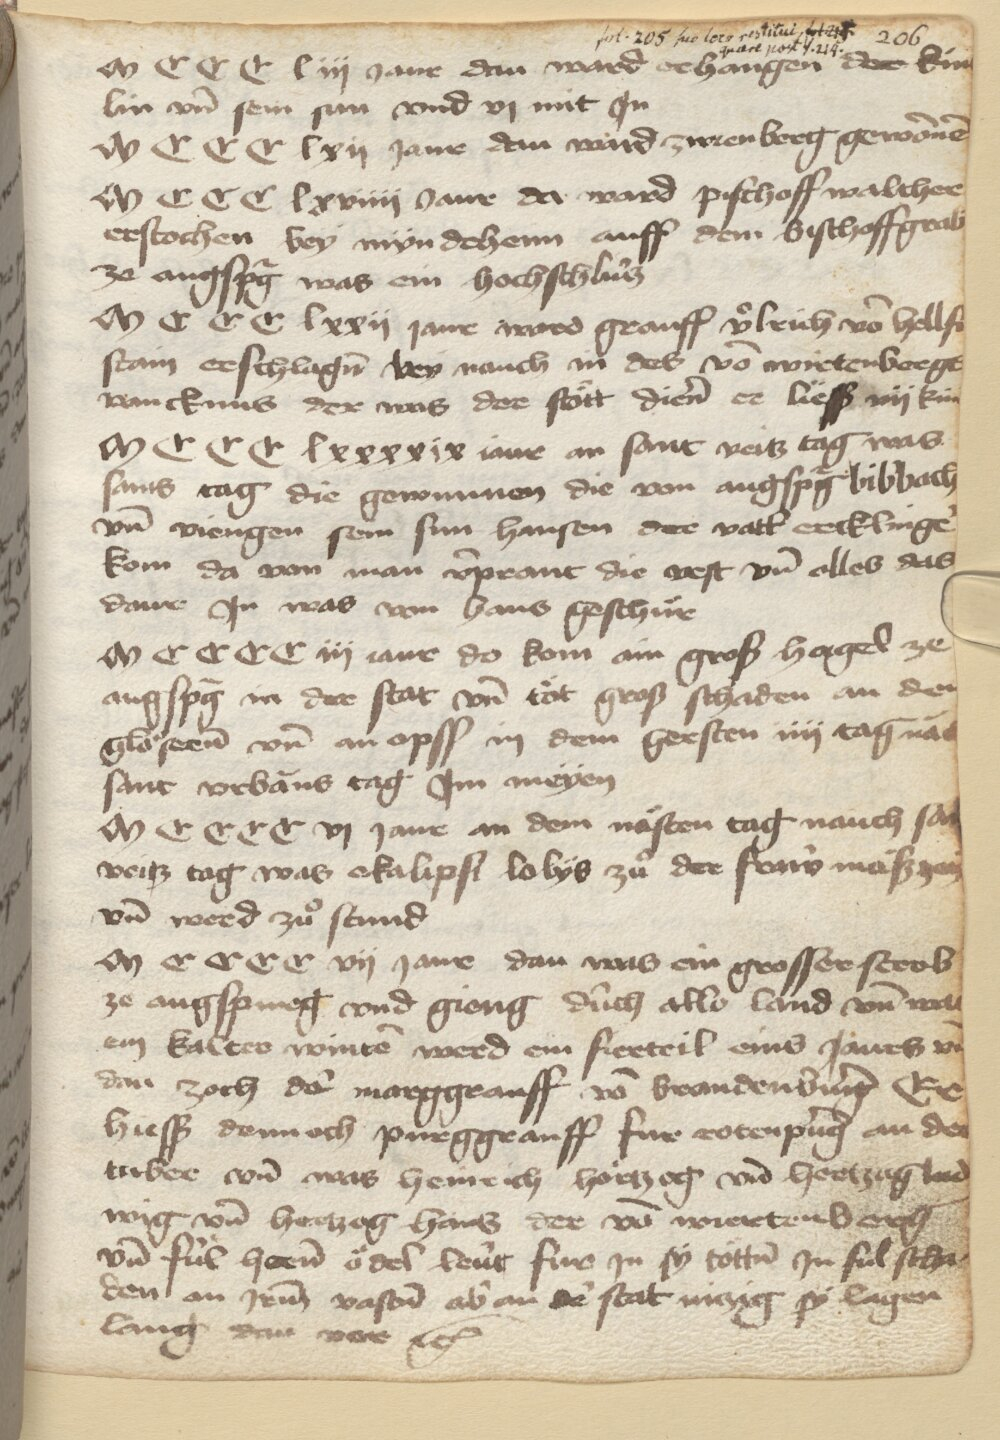 fol. 205 suo loco restitui, fol. 214
quære post f. 214. 206
M C C C l iij Jaur dau ward erhangen der kün
lin vn̄ sein sun vnd vj mit Jm
M C C C lxij Jaur dau ward zwenberg gewōnē
M C C C lxviiij Jaur da ward pischoff walther
erstochen bey myndehenn auff dem bischoffgrab
ze augspḡ was ein hochschlus
M C C C lxxij jaur ward grauff vͦlrich vō hellff
stain erschlagn̄ bey nauch in des vō wirtenbergs
vancknus der was der stött dien̄ er liess vij kin
M C C C lxxxxix iaur an sant veitz tag was
sans tag die gewunnen die von augspḡ bibbach
vn̄ viengen sein sun hansen der vatt ercklinge
kom da von man v̄prant die vest vn̄ alles das
daur Jn was von haus geschür
M C C C C iij iaur do kom ain gross hagel ze
augspḡ in der stat vn̄ töt gross schaden an den
vn̄ an opss in dem gersten iiij tag nāc
sant vrbāns tag Jm meÿen
M C C C C vj Jaur an dem nästen tag nauch san
veitz tag was ekalipsi zuͦ der
vn̄ werd zuͦ stund
M C C C C vij Jaur dau was ein grosser sterb
ze augspurg vnd gieng durch alle land vn̄ was
ein kalter winter werd ein fierteil eins Jaurs vn̄
dau zoch der marggrauff vō brandenburg Er
hiess dennoch purggrauff fur rotenpurg an der
tuber vn̄ was heinrich hörtzog vn̄ hertzag lud
wig vn̄ hertzog hans der vō wirtenberg
vn̄ fil hern̄ ödel leut fur in sÿ töttn̄ Jn fil scha
den an Jrm̄ vastn̄ ab an der stat sÿ lagen
lang dau vor